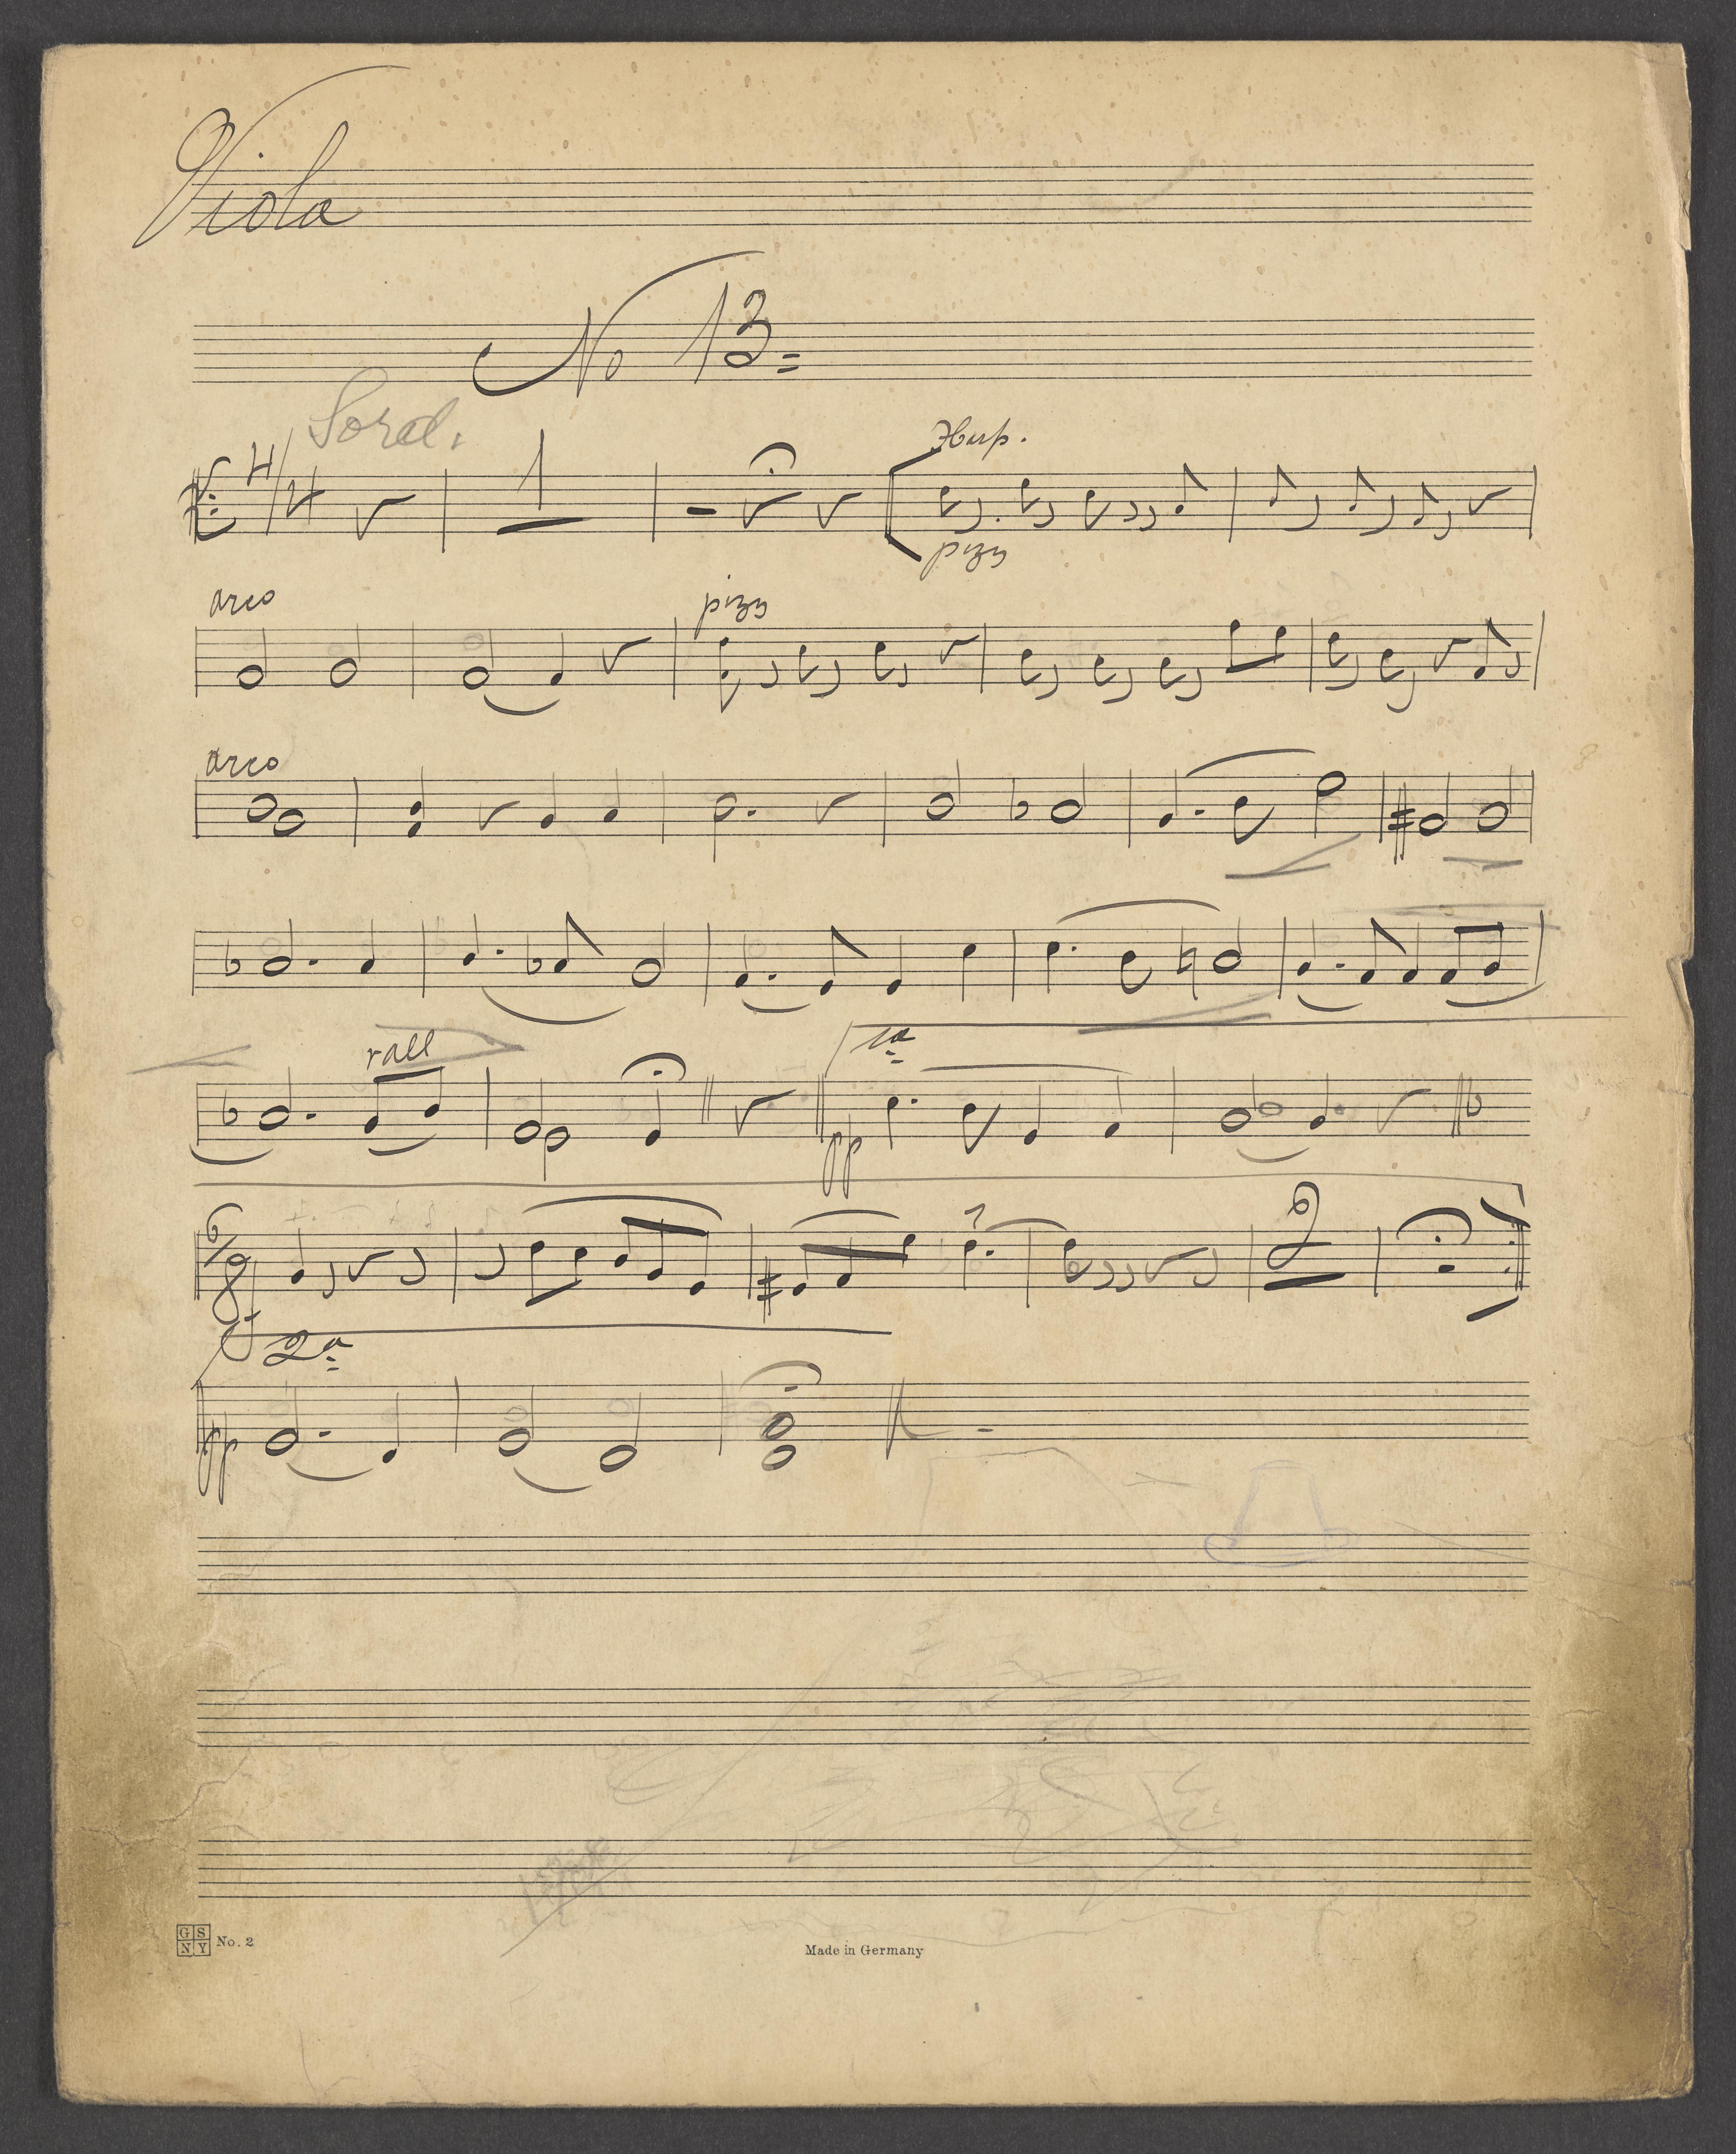 Viola
No 13
Sord.
4/4
1
Harp.
pizz
arco
pizz
arco
rall
1a
pp
6/8
2
2a
pp
GS
NY No. 2
Made in Germany